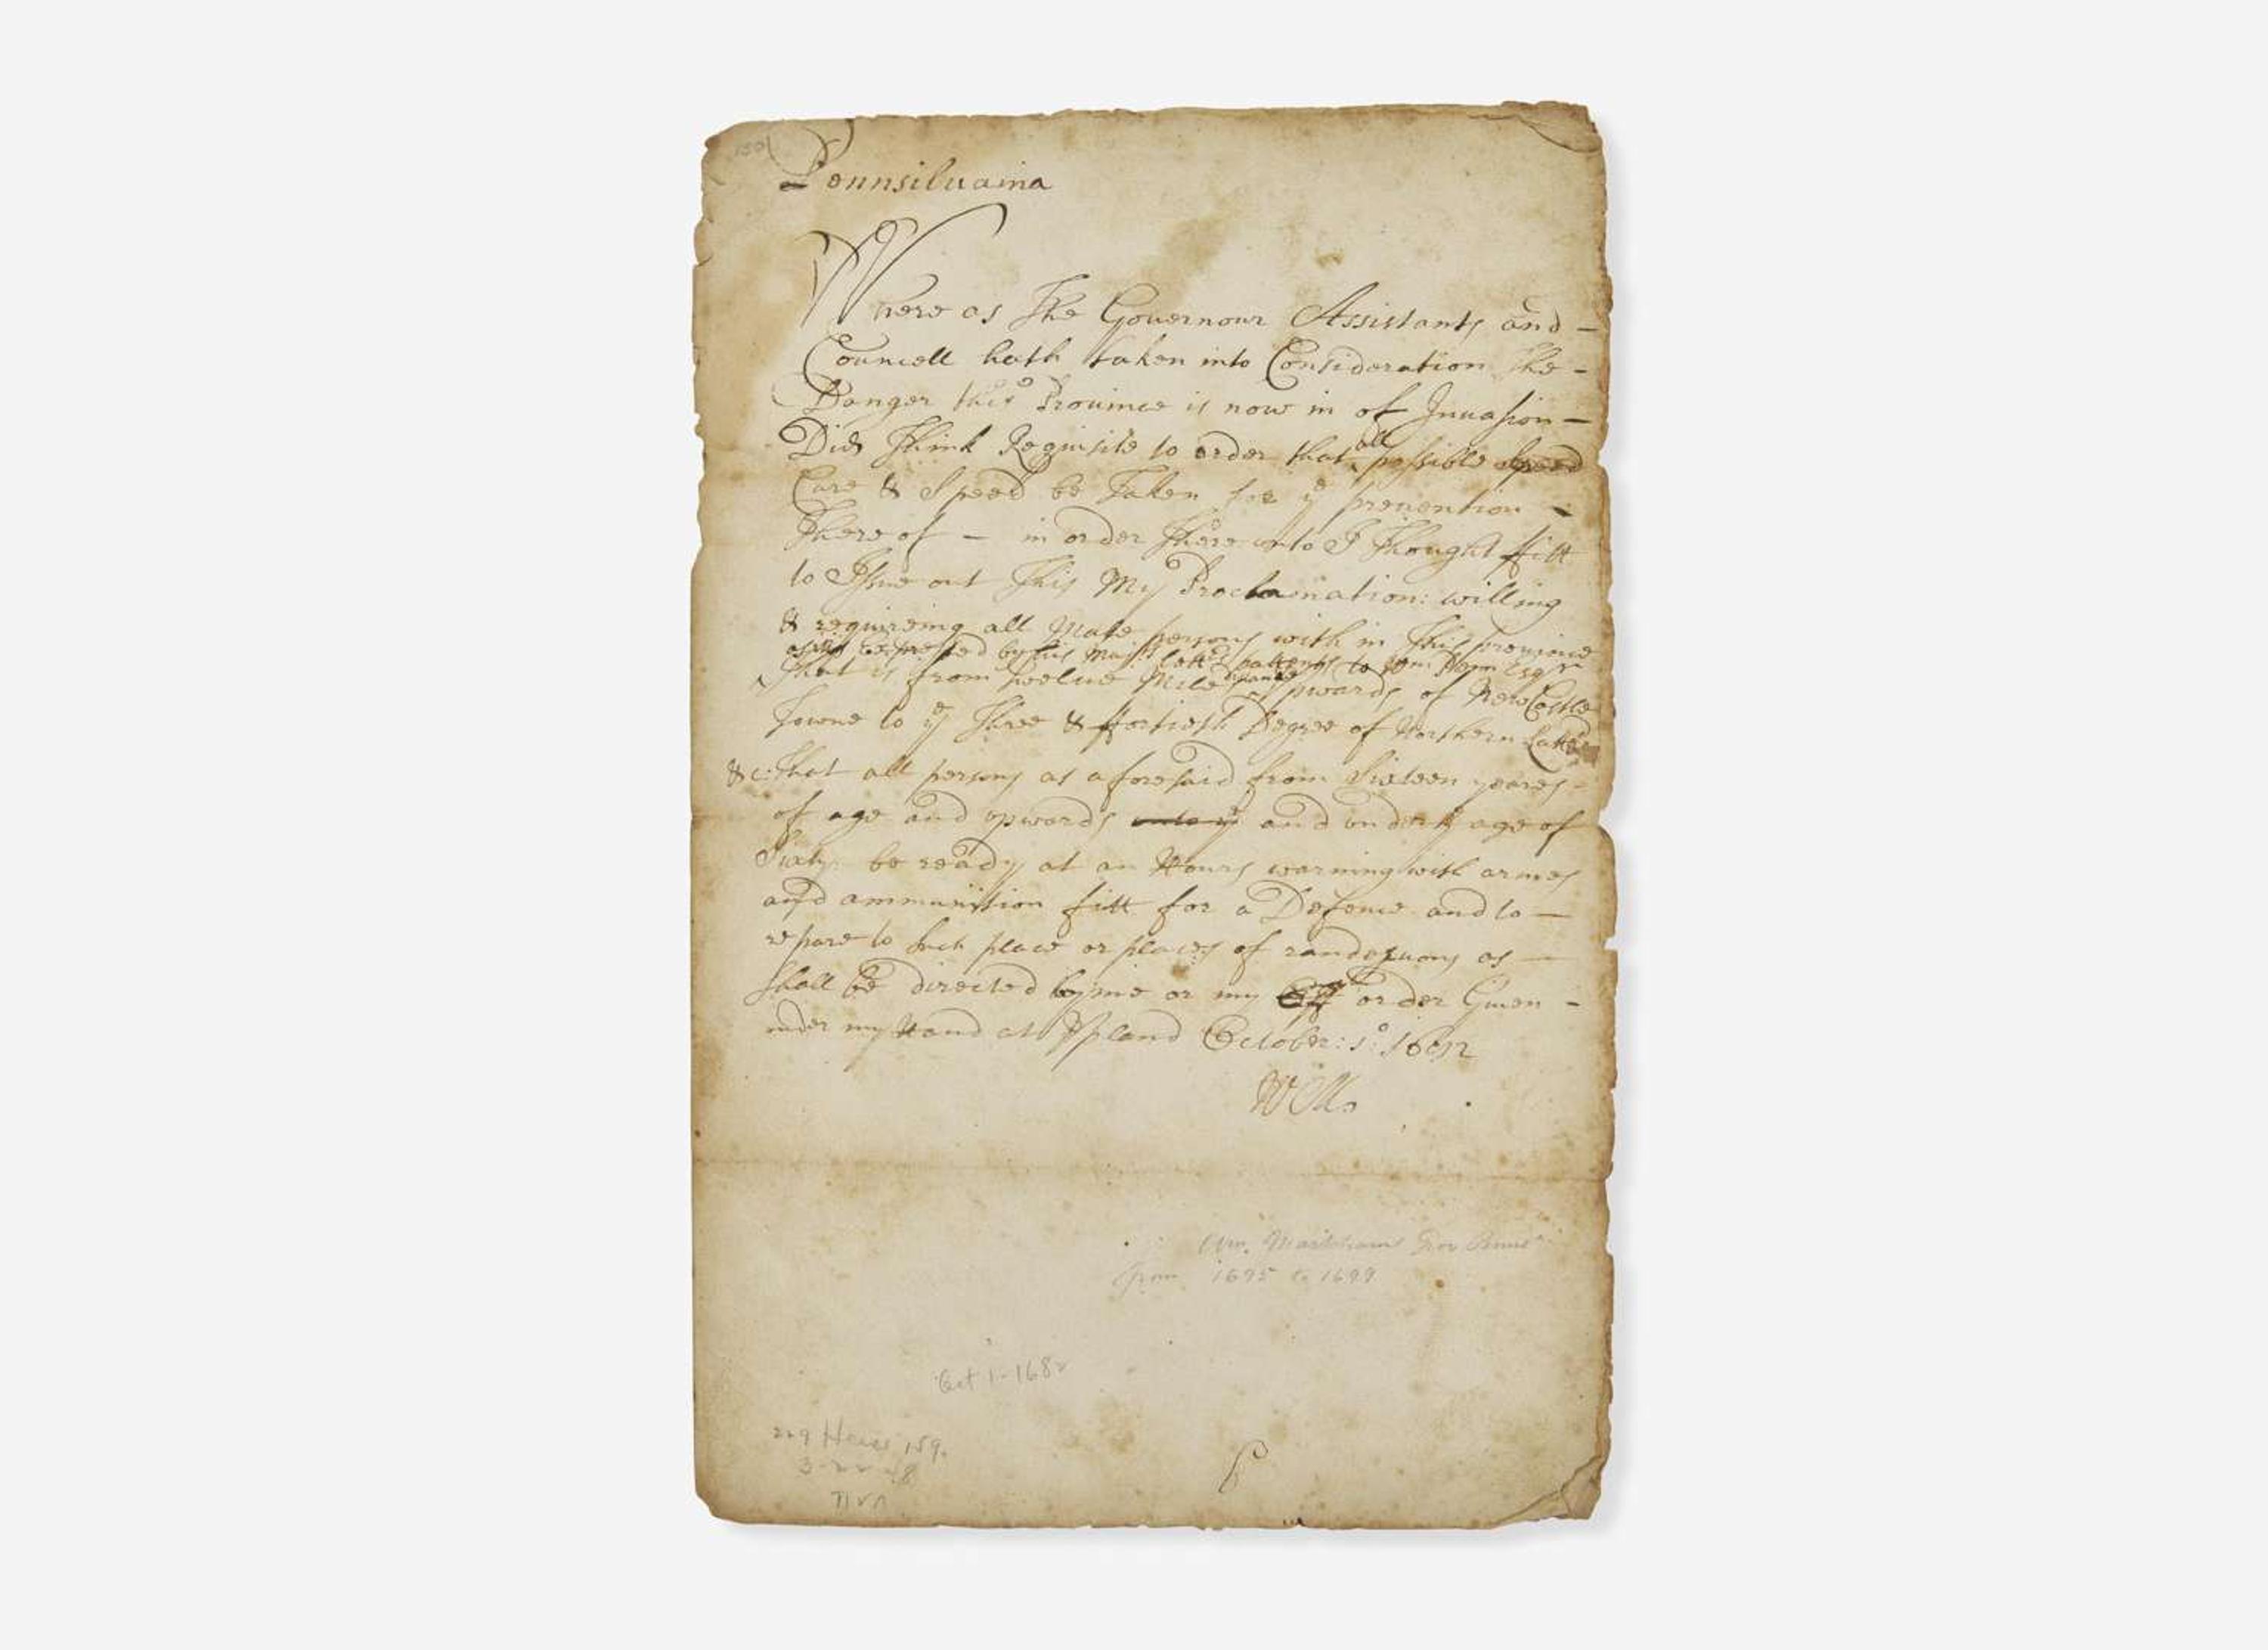 Pennsilvania
Where as The Governour Assistants and -
Councell hath taken into Consideration The -
Danger this Province is now in of Invasion -
Did Think Requisite to order that all possible Speed
Care & Speed be Taken for ye prevention -
There of - in order There unto I Thought fitt
to Issue out This My Proclamation: willing
& requireing all Male persons with in This province
as is Expressed by his Majts Lettrs pattents to Wm Penn Esqr
That is from twelve Mile distance upwards of New Castle
Towne to ye Three & ffortieth Degree of Northern Lattd
&c: That all persons as aforesaid from Sixteen yeares -
of age and upwards unto ye and under ye age of
Sixty be ready at an Hours warning with armes
and ammunition fitt for a Defence and to -
repare to Such place or places of randezvous as -
Shall be directed by me or my order Given -
under my Hand at Upland October: 1o: 1682
WM
Wm. Markham Gov Penna
from 1695 to 1699
Oct 1-1682
159.